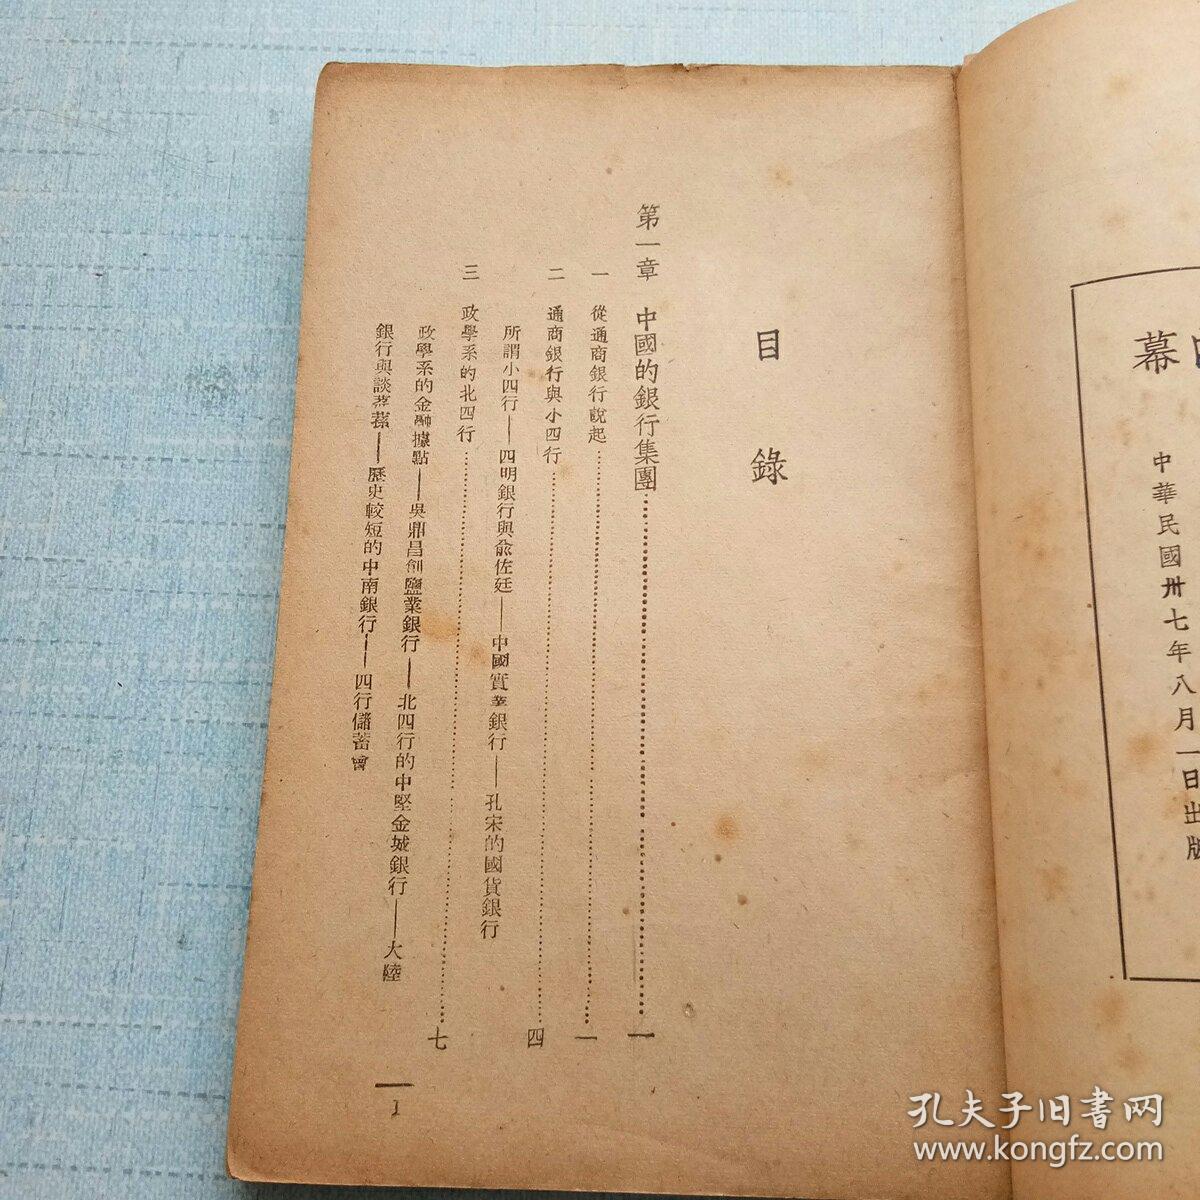 幕
中華民國卅七年八月一日出版
目錄
第一章 中國的銀行集團……一
一 從通商銀行說起……一
二 通商銀行與小四行……四
所謂小四行——四明銀行與兪佐廷——中國實業銀行——孔宋的國貨銀行
三 政學系的北四行……七
政學系的金融據點——吳鼎昌創鹽業銀行——北四行的中堅金城銀行——大陸
銀行與談荔蓀——歷史較短的中南銀行——四行儲蓄會
1
孔夫子旧书网
www.kongfz.com